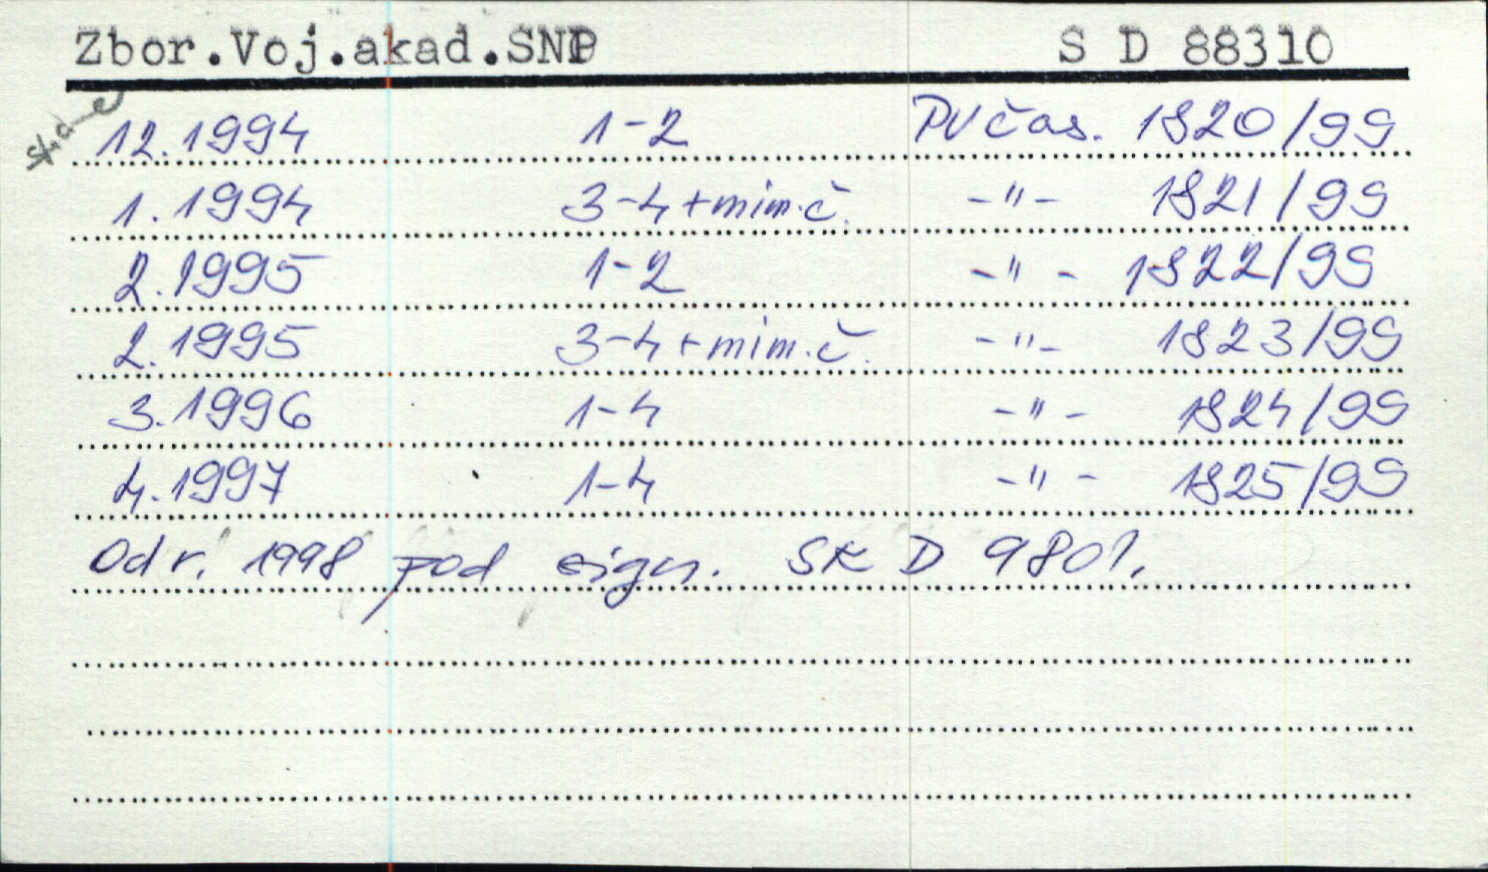 Zbor.Voj.akad.SNP S D 88310
12.1994 1-2 PV čas. 1820/99
1.1994 3-4+mim.č. -"- 1821/99
2.1995 1-2 -"- 1822/99
2.1995 3-4+mim.č. -"- 1823/99
3.1996 1-4 -"- 1824/99
4.1997 1-4 -"- 1825/99
Od r. 1998 pod sign. SK D 9801.